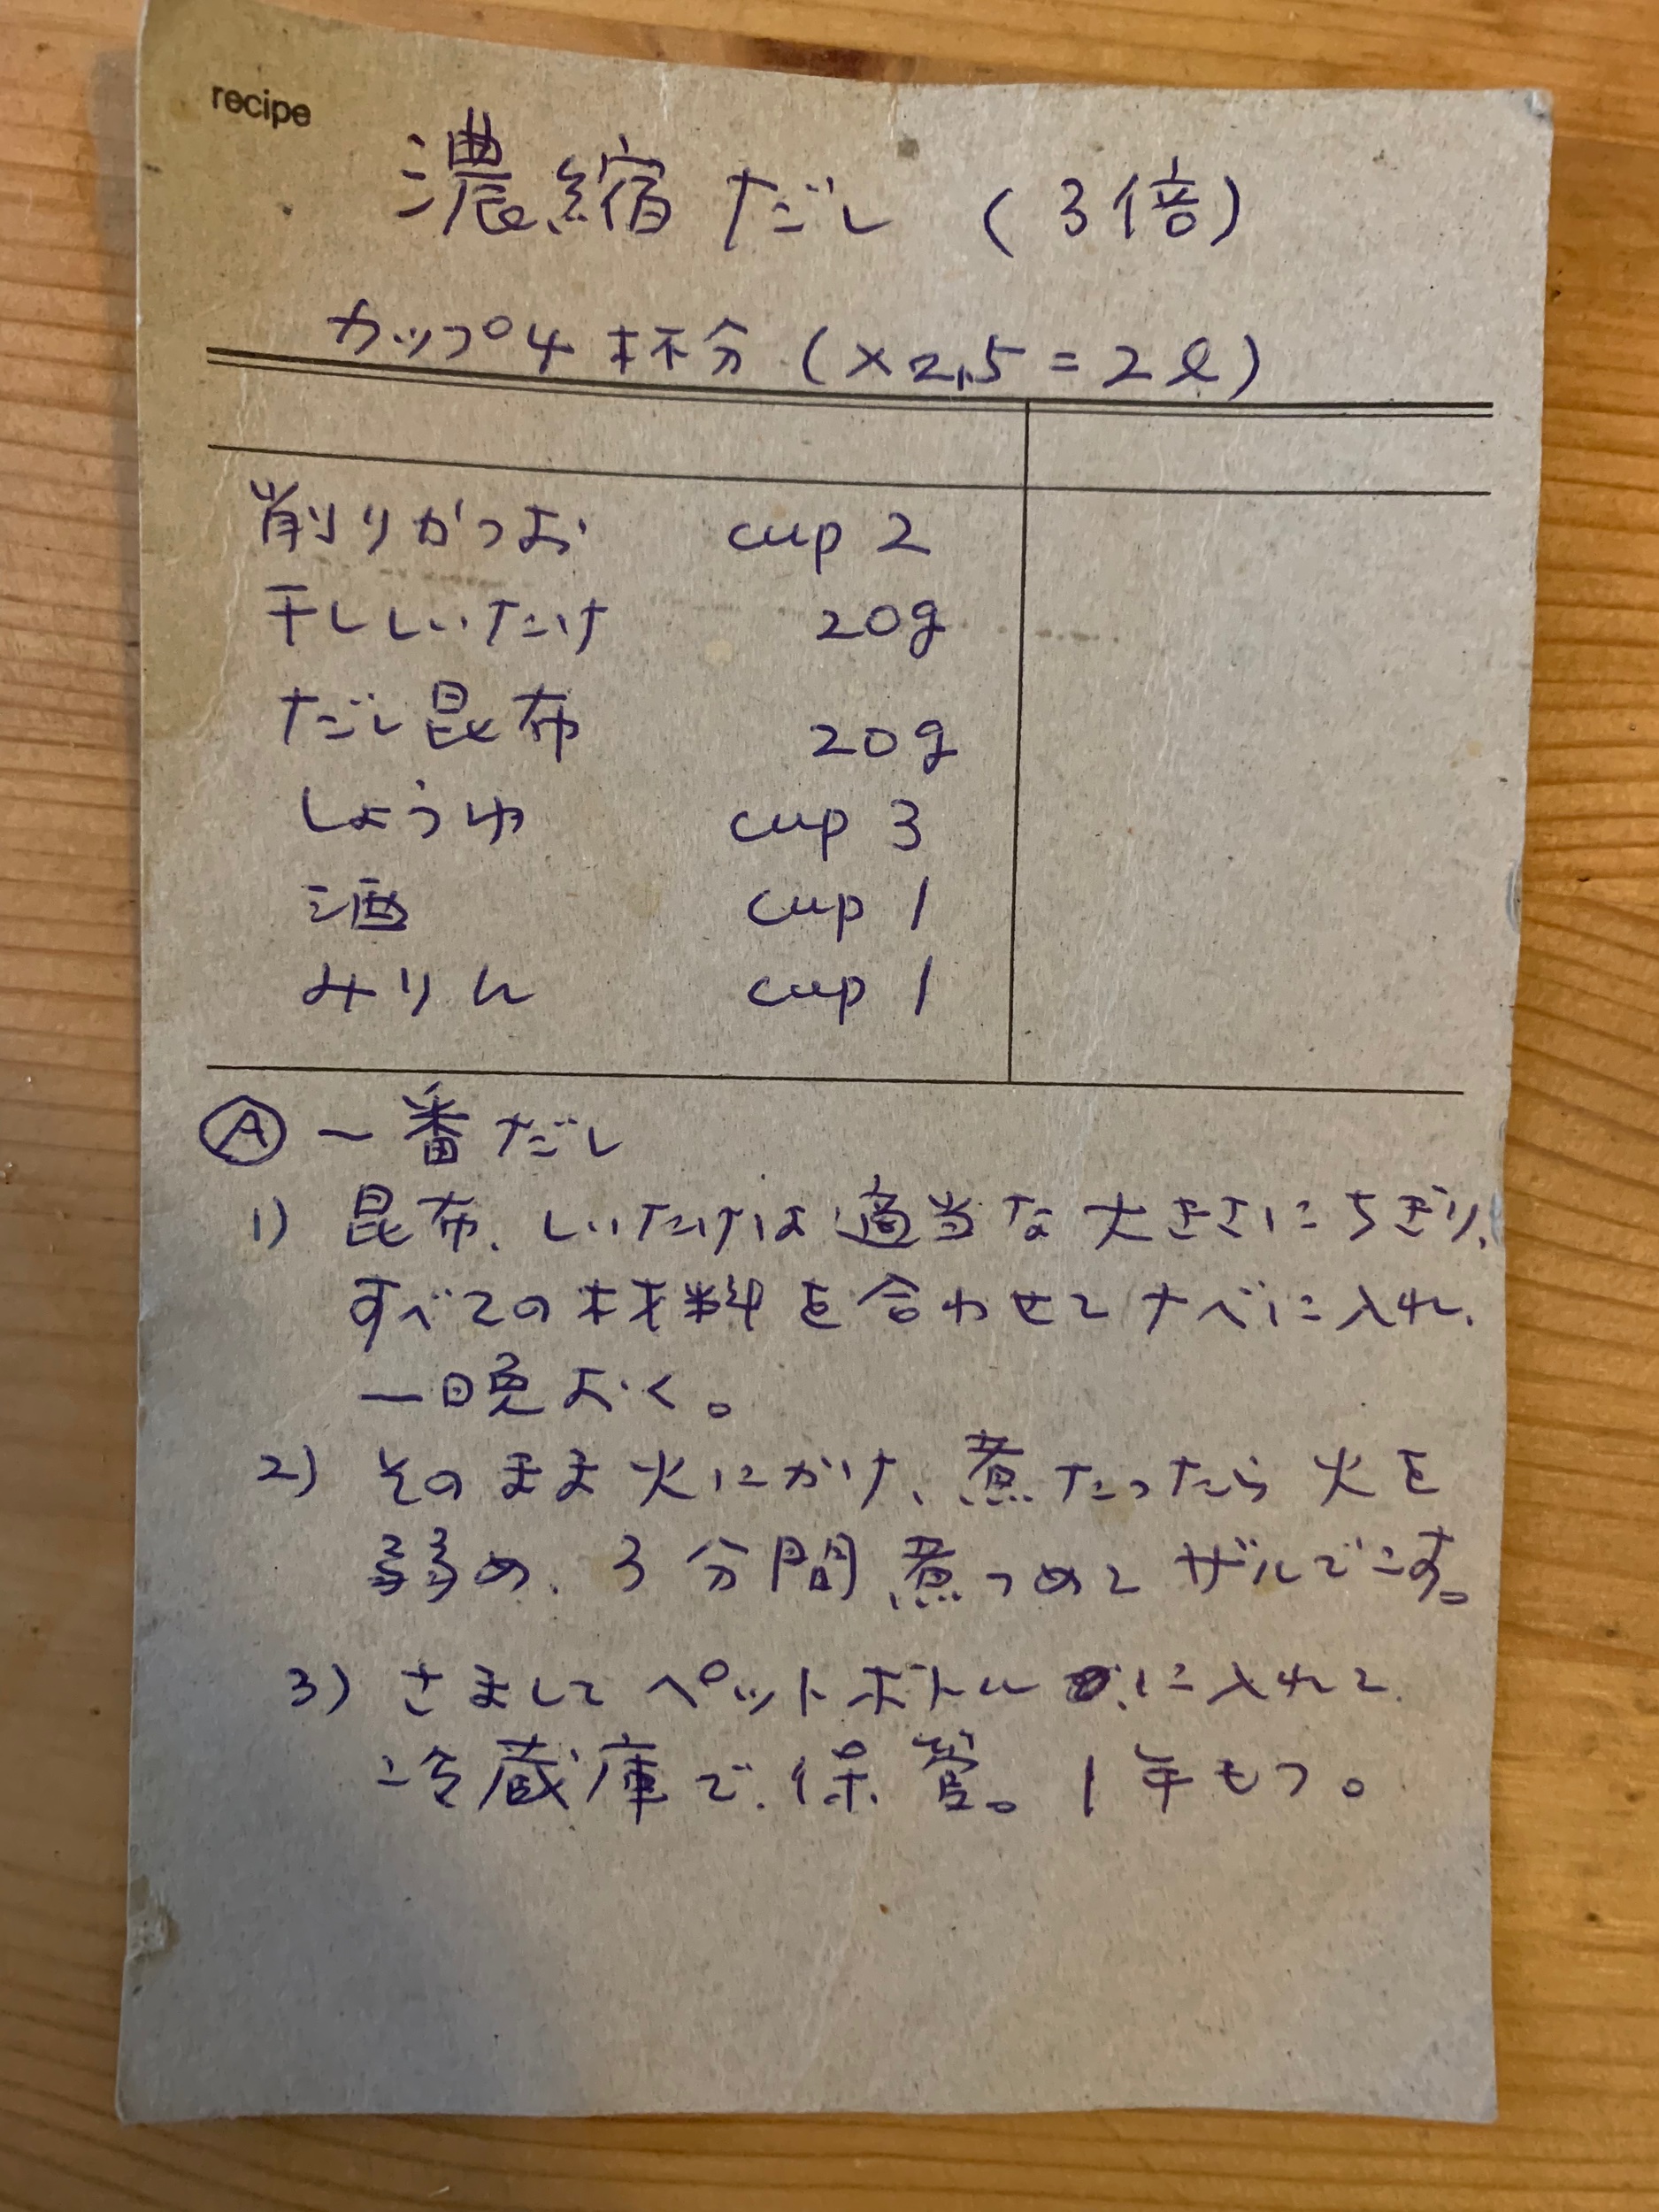 recipe
濃縮だし (3倍)
カップ4杯分 (×2.5=2ℓ)
削りがつお cup 2
干ししいたけ 20g
だし昆布 20g
しょうゆ cup 3
酒 cup 1
みりん cup 1
Ⓐ 一番だし
1) 昆布、しいたけは適当な大きさにちぎり、
すべての材料を合わせてナベに入れ、
一晩おく。
2) そのまま火にかけ、煮たったら火を
弱め、3分間煮つめてザルでこす。
3) さましてペットボトルに入れて、
冷蔵庫で保管。1年もつ。